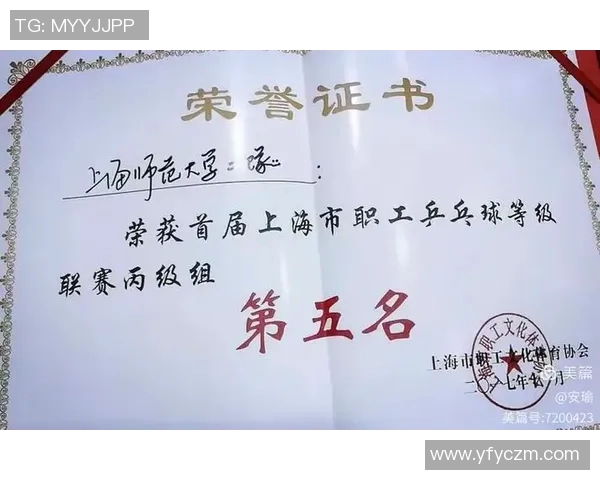 TG: MYYJJPP
荣誉证书
上海师范大学二队:
荣获首届上海市职工乒乓球等级
联赛丙级组
第五名
上海市职工文化体育协会
二〇一七年十一月
美篇
@安瑜
美篇号:7200423
www.yfyczm.com